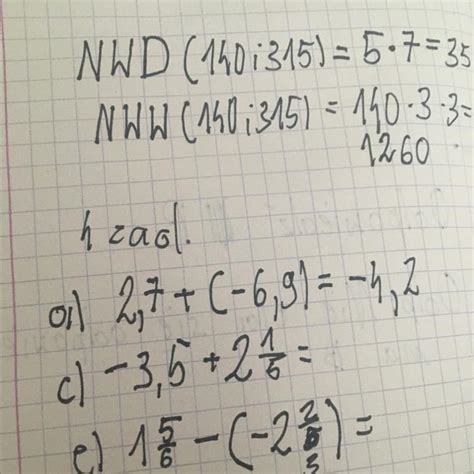 NWD (140 i 315) = 5 · 7 = 35
NWW (140 i 315) = 140 · 3 · 3 =
1260
4 zad.
a) 2,7 + (-6,9) = -4,2
c) -3,5 + 2 1/5 =
e) 1 5/6 - (-2 2/3) =